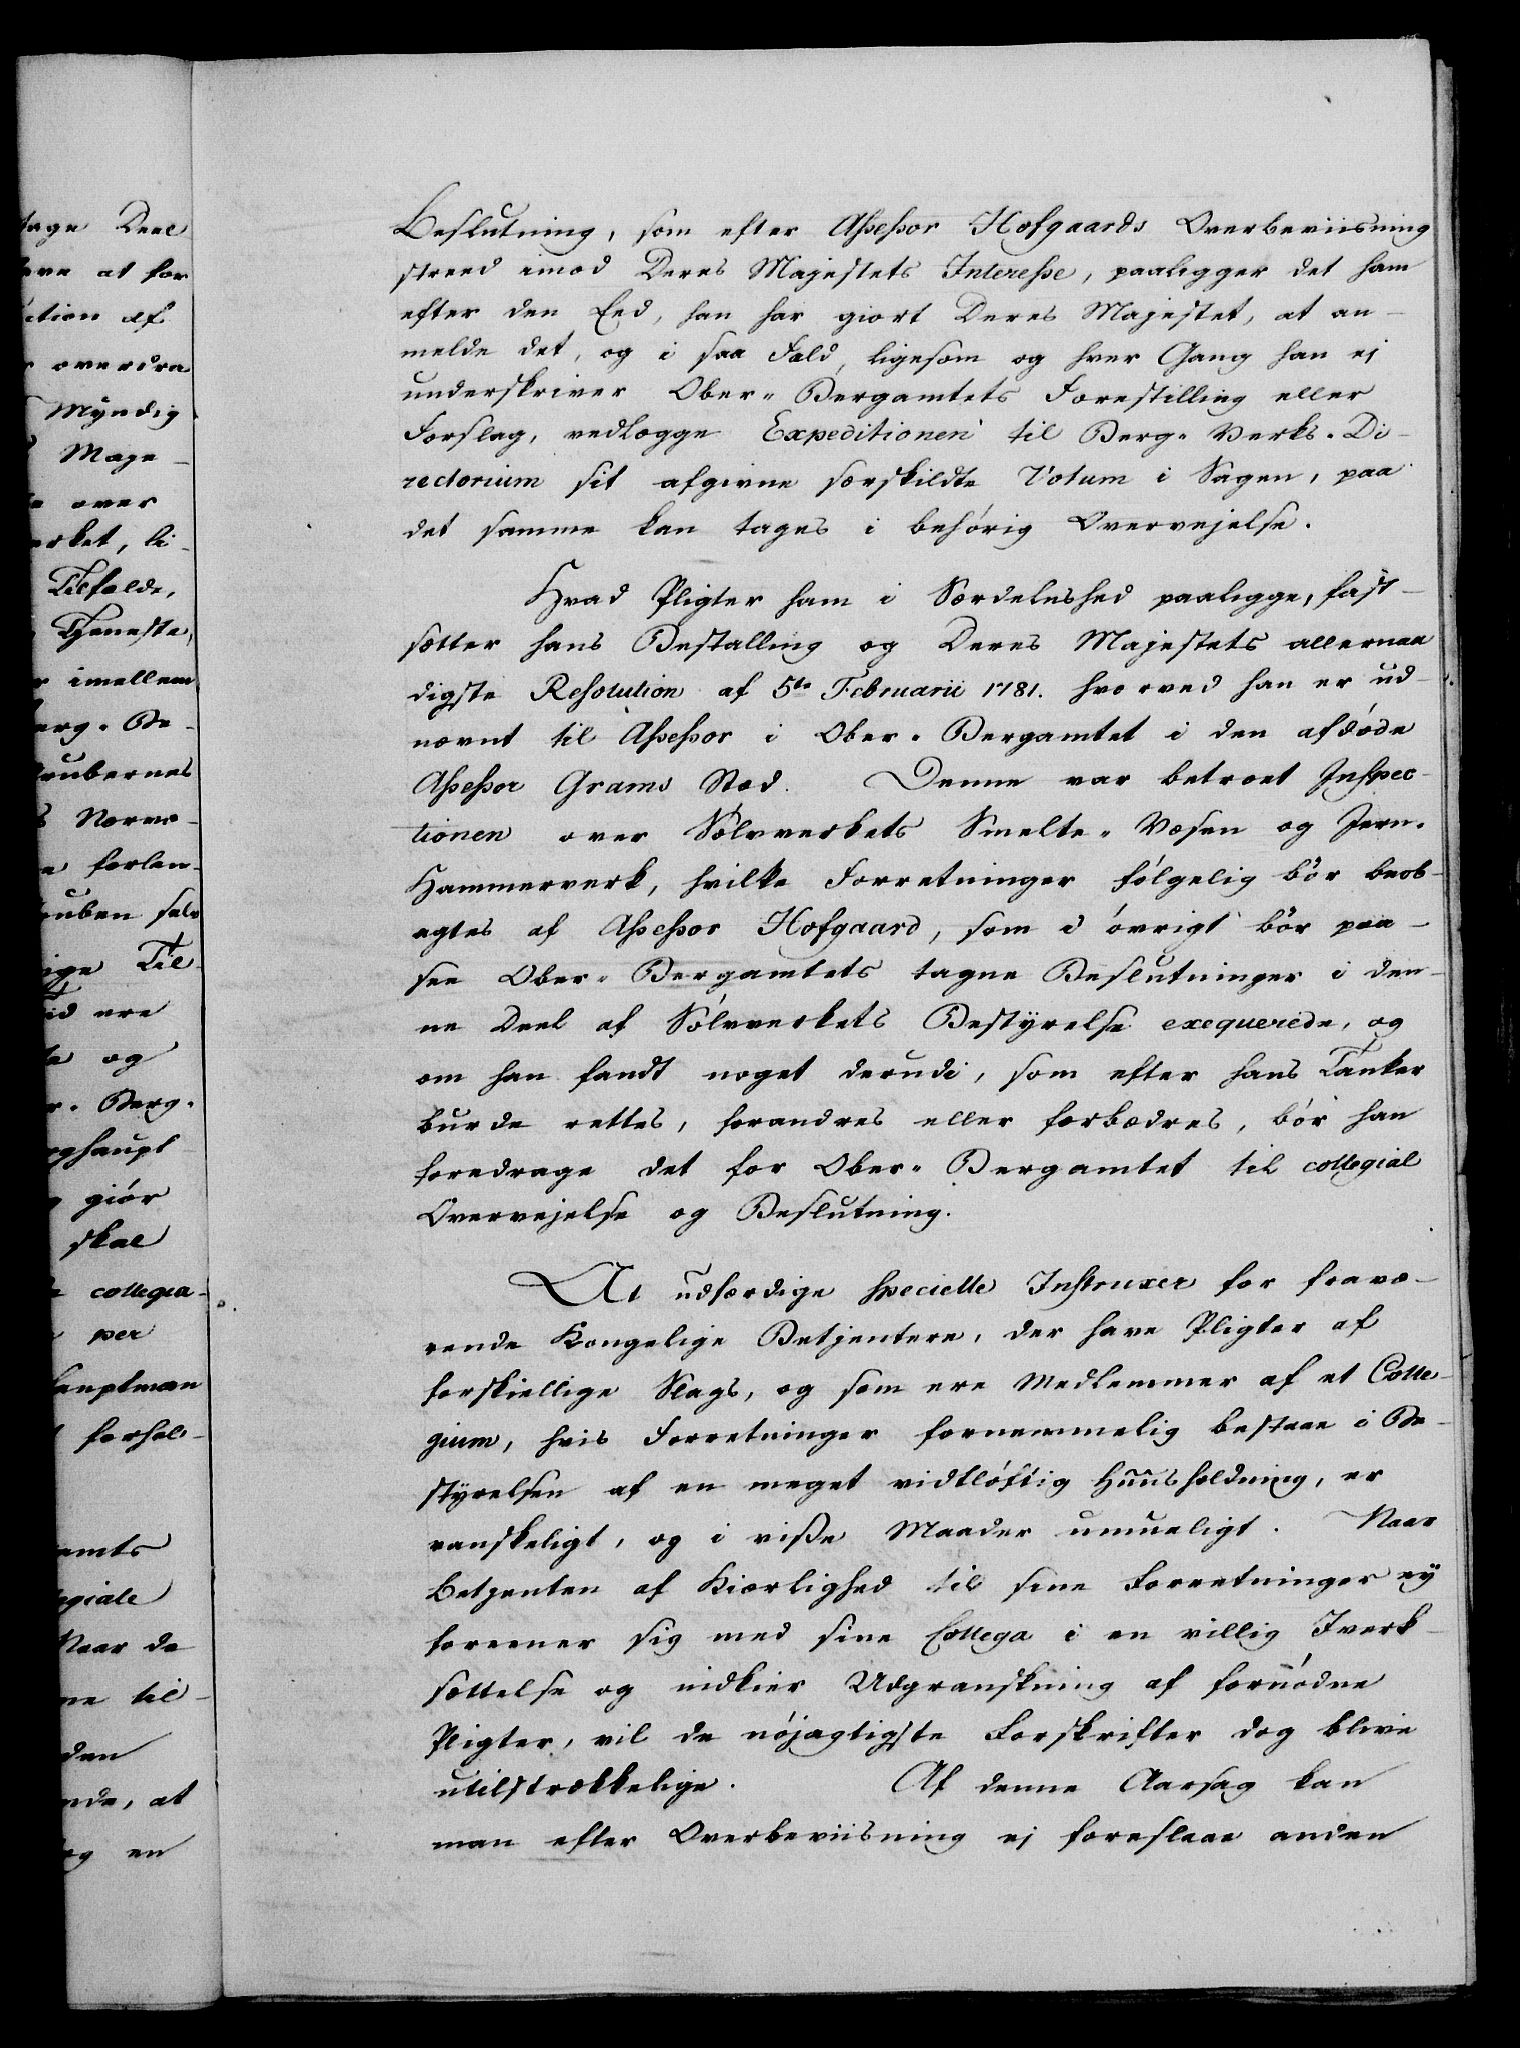 tage Deel
ave at for
ction af
r overdra
Myndig
Maje-
te over
erket, li-
Tilfælde,
Tjeneste,
r imellem
erg-Be-
Grubernes
s Nærvæ-
e forlan-
ruben selv
ige Til-
tid ere
te og
r-Berg-
rghaupt
g giör
skal
collegia-
per
haupman
forhol-
amts
egiale
Naar de
ne til-
den
nde, at
og en
Beslutning, som efter Assessor Hofgaards Overbeviisning
streed imod Deres Majestets Interesse, paaligger det ham
efter den Eed, han har giort Deres Majestet, at an-
melde det, og i saa Fald, ligesom og hver Gang han ej
underskriver Ober-Bergamtets Forestilling eller
Forslag, vedlægge Expeditionen til Berg-Verks-Di-
rectorium sit afgivne særskildte Votum i Sagen, paa
det samme kan tages i behörig Overvejelse.
Hvad Pligter ham i Særdeleshed paaligge, fast-
sætter hans Bestalling og Deres Majestets allernaa
digste Resolution af 5te Februarii 1781. hvorved han er ud-
nævnt til Assessor i Ober-Bergamtet i den afdöde
Assessor Grams Stæd. Denne var betroet Inspec-
tionen over Sölvverkets Smelte-Væsen og Jern-
Hammerverk, hvilke Forretninger fölgelig bör beob-
agtes af Assessor Hofgaard, som i övrigt bör paa-
see Ober-Bergamtets tagne Beslutninger i den-
ne Deel af Sölvverkets Bestyrelse exequerede, og
om han fandt noget derudi, som efter hans Tanker
burde rettes, forandres eller forbædres, bör han
foredrage det for Ober-Bergamtet til collegial
Overvejelse og Beslutning.
At udfærdige specielle Instruxer for fravæ-
rende Kongelige Betjentere, der have Pligter af
forskiellige Slags, og som ere Medlemmer af et Colle-
gium, hvis Forretninger fornemmelig bestaae i Be-
styrelsen af en meget vidtlöftig Huusholdning, er
vanskeligt, og i visse Maader umueligt. Naar
Betjenten af Kiærlighed til sine Forretninger ey
foreener sig med sine Collega i en villig Iverk-
sættelse og nidkier Udgranskning af fornödne
Pligter, vil de nöjagtigste Forskrifter dog blive
utilstrækkelige. Af denne Aarsag kan
man efter Overbeviisning ej foreslaae anden